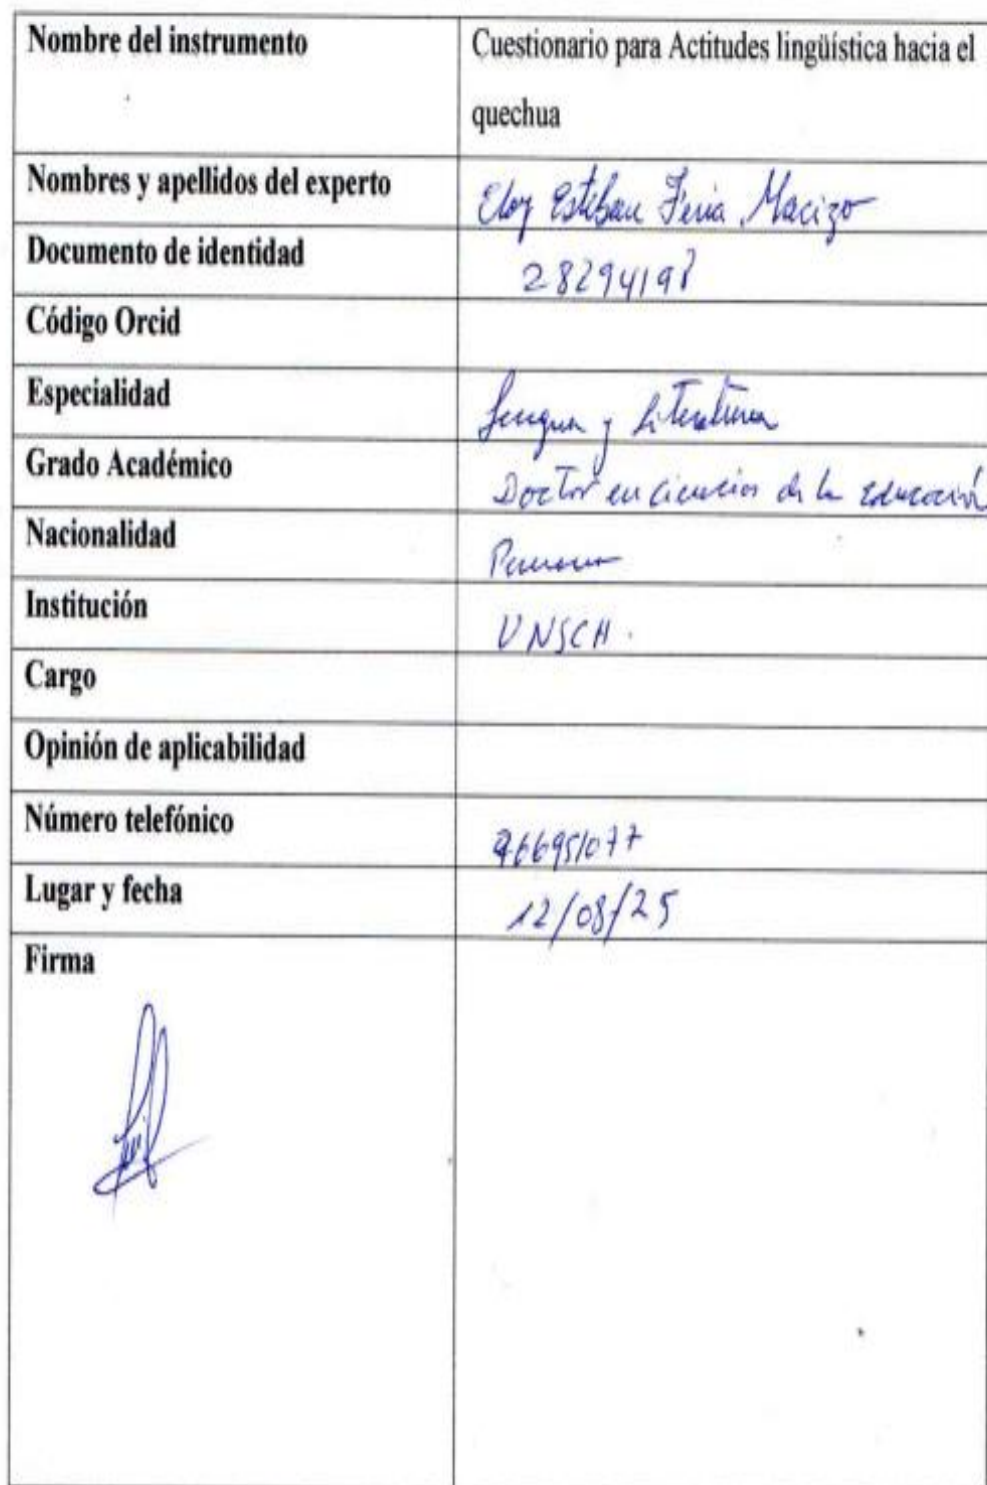 Nombre del instrumento
Cuestionario para Actitudes lingüística hacia el
quechua
Nombres y apellidos del experto
Eloy Esteban Feria Macizo
Documento de identidad
28294198
Código Orcid
Especialidad
Lengua y Literatura
Grado Académico
Doctor en ciencias de la Educación
Nacionalidad
Peruano
Institución
UNSCH.
Cargo
Opinión de aplicabilidad
Número telefónico
966951077
Lugar y fecha
12/08/25
Firma